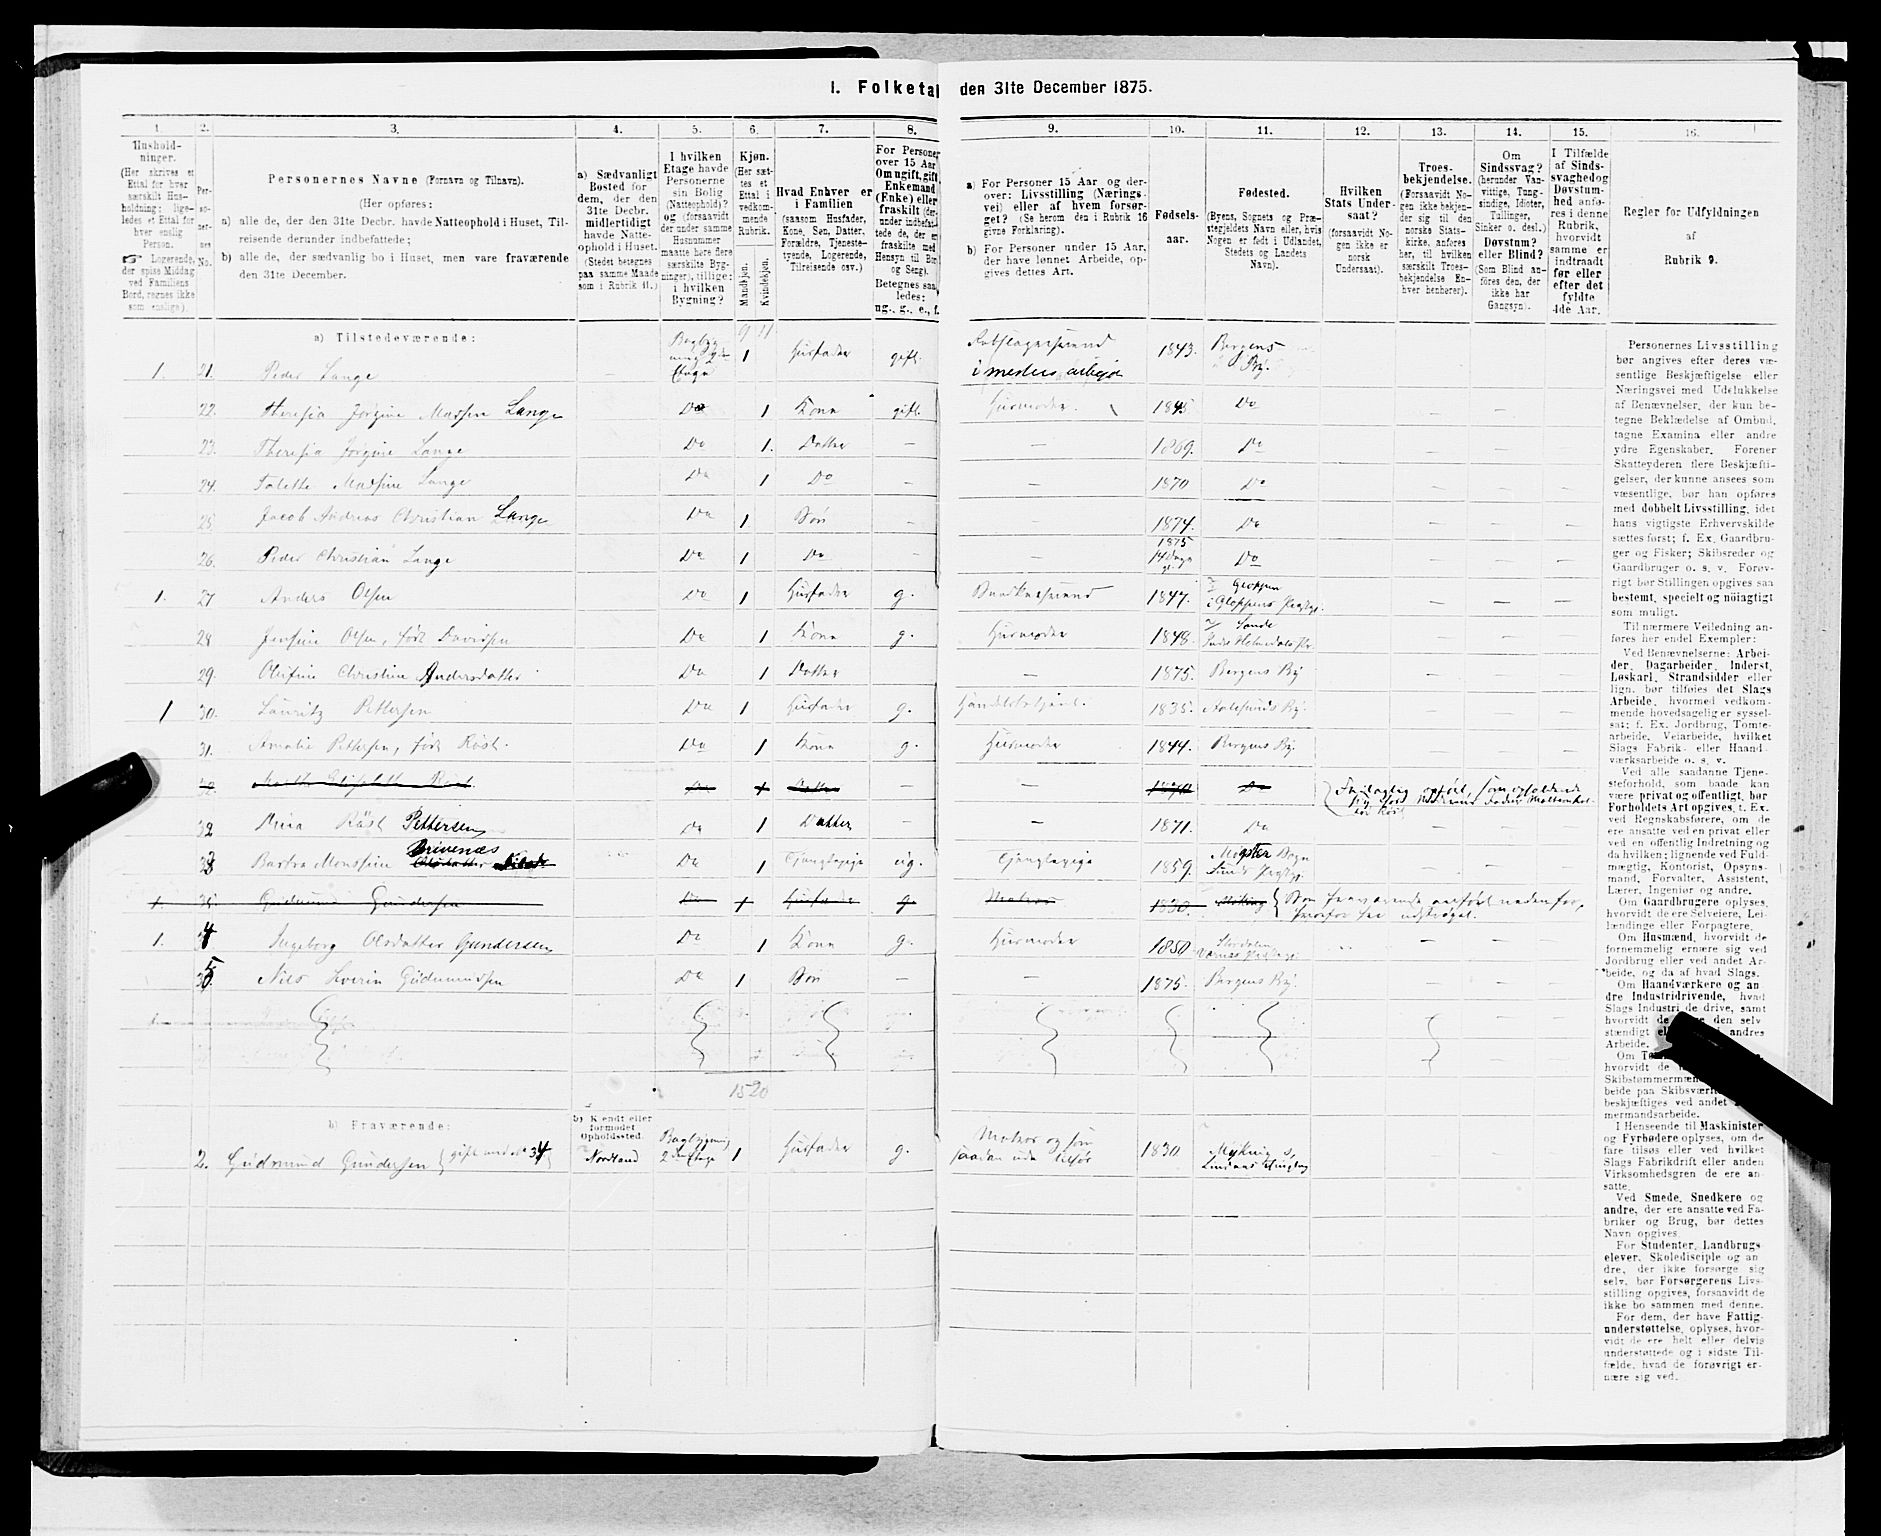 I. Folketal den 31te December 1875.
1. 2. 3. 4. 5. 6. 7. 8. 9. 10. 11. 12. 13. 14. 15. 16.
Hushold-
ninger.
(Her skrives et
Ettal for hver
særskilt Hus-
holdning; lige-
ledes et Ettal for
hver enslig
Person.
☞ Logerende,
der spise Middag
ved Familiens
Bord, regnes ikke
som enslige).
Per-
so-
ner-
nes
No.
Personernes Navne (Fornavn og Tilnavn).
(Her opføres:
a) alle de, der den 31te Decbr. havde Natteophold i Huset, Til-
reisende derunder indbefattede;
b) alle de, der sædvanlig bo i Huset, men vare fraværende
den 31te December.
a) Sædvanligt
Bosted for
dem, der den
31te Decbr.
midlertidigt
havde Natte-
ophold i Huset.
(Stedet betegnes
paa samme Maade
som i Rubrik 11.)
I hvilken
Etage havde
Personerne
sin Bolig
(Natteophold)?
og (forsaavidt
der under samme
Husnummer
maatte høre flere
særskilte Byg-
ninger), tillige:
i hvilken
Bygning?
Kjøn.
(Her sæt-
tes et
Ettal i
vedkom-
mende
Rubrik.
Mandkjøn.
Kvindekjøn.
Hvad Enhver er
i Familien
(saasom Husfader,
Kone, Søn, Datter,
Forældre, Tjeneste-
tyende, Logerende,
Tilreisende osv.)
For Personer
over 15 Aar
Om ugift, gift,
Enkemand
(Enke) eller
fraskilt (der-
under indbefat-
tede de, der ere
fraskilte med
Hensyn til Bord
og Seng).
Betegnes saa-
ledes:
ug., g., e., f.
a) For Personer 15 Aar og der-
over: Livsstilling (Nærings-
vei) eller af hvem forsør-
get? (Se herom den i Rubrik 16
givne Forklaring).
b) For Personer under 15 Aar,
der have lønnet Arbeide, op-
gives dettes Art.
Fødsels-
aar.
Fødested.
(Byens, Sognets og Præ-
stegjeldets Navn eller, hvis
Nogen er født i Udlandet,
Stedets og Landets
Navn).
Hvilken
Stats Under-
saat?
(forsaavidt No-
gen ikke er
norsk
Undersaat).
Troes-
bekjendelse.
(Forsaavidt No-
gen ikke bekjen-
der sig til den
norske Stats-
kirke, anføres
her, til hvilken
særskilt Troes-
bekjendelse En-
hver henhører).
Om
Sindssvag?
(herunder Van-
vittige, Tung-
sindige, Idioter,
Tullinger,
Sinker o. desl.)
Døvstum?
eller Blind?
(Som Blind an-
føres den, der
ikke har
Gangsyn).
I Tilfælde
af Sinds-
svaghed og
Døvstum-
hed anfø-
res i denne
Rubrik,
hvorvidt
samme er
indtraadt
før eller
efter det
fyldte
4de Aar.
Regler for Udfyldningen
af
Rubrik 9.
a) Tilstedeværende:
1. 21. Peder Lange Bagbyg- ning 2den Etage 1 Husfader gift. i mesters arbeide 1843. Bergens By.
22. Theresia Jørgine Massine Lange Do 1 Kone gift. Husmoder. 1845 Do
23. Theresia Jørgine Lange Do 1. Datter — — 1869. Do
24. Massine Lange Do 1 Do — — 1870 Do
25. Jacob Andreas Christian Lange Do 1 Søn — — 1874. Do
26. Peder Christian Lange Do 1 Do — — 1875 14 Dage gl. Do
1. 27 Anders Olsen Do 1 Husfader g. 1847. Gloppen i Gloppens Prgstgj.
28 Jensine Olsen, født Davidsen Do 1 Kone g. Husmoder 1848. Sande
29. Christine Andersdatter Do 1 Datter — 1875. Bergens By
1 30. Lauritz Pettersen Do 1 Husfader g. 1835. Aalesunds By.
31. Amalie Pettersen, født Røst. Do 1 Kone g. Husmoder 1844. Bergens By.
32. Do 1 Datter — — 1870 Do
32 Røst Pettersen Do 1 Datter — 1871. Do
33 Monsine Brivenæs Do 1 Tjenestepige ug. Tjenestepige 1859. Møgster Sogn
1. 35. Gudmund Gundersen Do 1 Husfader g. Matros 1830. Som fraværende anført nedenfor, hvorfor her udstrøget.
1. 34 Ingeborg Olsdatter Gundersen Do 1 Kone g. Husmoder 1850
35. Nils Severin Gudmundsen Do 1 Søn — — 1875. Bergens By.
15 20
b) Fraværende:
b) Kjendt eller
formodet
Opholdssted.
2. Gudmund Gundersen gift med No 34 Nordland Bagbygning 2den Etage 1 Husfader g. Matros og som saadan ude tilsøs 1830 Myking
Personernes Livsstilling
bør angives efter deres væ-
sentlige Beskjæftigelse eller
Næringsvei med Udelukkelse
af Benævnelser, der kun be-
tegne Beklædelse af Ombud,
tagne Examina eller andre
ydre Egenskaber. Forener
Skatteyderen flere Beskjæfti-
gelser, der kunne ansees som
væsentlige, bør han opføres
med dobbelt Livsstilling, idet
hans vigtigste Erhvervskilde
sættes først; f. Ex. Gaardbru-
ger og Fisker; Skibsreder og
Gaardbruger o. s. v. Forøv-
rigt bør Stillingen opgives saa
bestemt, specielt og nöiagtigt
som muligt.
Til nærmere Veiledning an-
føres her endel Exempler:
Ved Benævnelserne: Arbei-
der, Dagarbeider, Inderst,
Løskarl, Strandsidder eller
lign. bør tilføies det Slags
Arbeide, hvormed vedkom-
mende hovedsagelig er syssel-
sat; f. Ex. Jordbrug, Tomte-
arbeide, Veiarbeide, hvilket
Slags Fabrik- eller Haand-
værksarbeide o. s. v.
Ved alle saadanne Tjene-
steforhold, som baade kan
være privat og offentligt, bør
Forholdets Art opgives, t. Ex.
ved Regnskabsførere, om de
ere ansatte ved en privat eller
ved en offentlig Indretning og
da hvilken; lignende ved Fuld-
mægtig, Kontorist, Opsyns-
mand, Forvalter, Assistent,
Lærer, Ingeniør og andre.
Om Gaardbrugere oplyses,
hvorvidt de ere Selveiere, Lei-
lændinge eller Forpagtere.
Om Husmænd, hvorvidt de
fornemmelig ernære sig ved
Jordbrug eller ved andet Ar-
beide, og da af hvad Slags.
Om Haandværkere og an-
dre Industridrivende, hvad
Slags Industri de drive, samt
hvorvidt de den selv
stændigt andres
Arbeide.
Om
hvorvidt de
Skibstømmermæn
beide paa Skibsværf
beskjæftiges ved andet
mermandsarbeide.
I Henseende til Maskinister
og Fyrbødere oplyses, om de
fare tilsøs eller ved hvilket
Slags Fabrikdrift eller anden
Virksomhedsgren de ere an-
satte.
Ved Smede, Snedkere og
andre, der ere ansatte ved Fa-
briker og Brug, bør dettes
Navn opgives.
For Studenter, Landbrugs
elever, Skoledisciple og an-
dre, der ikke forsørge sig
selv, bør Forsørgerens Livs-
stilling opgives, forsaavidt de
ikke bo sammen med denne.
For dem, der have Fattig-
understøttelse, oplyses, hvor-
vidt de ere helt eller delvis
understøttede og i sidste Til-
fælde, hvad de forøvrigt er-
nære sig ved.